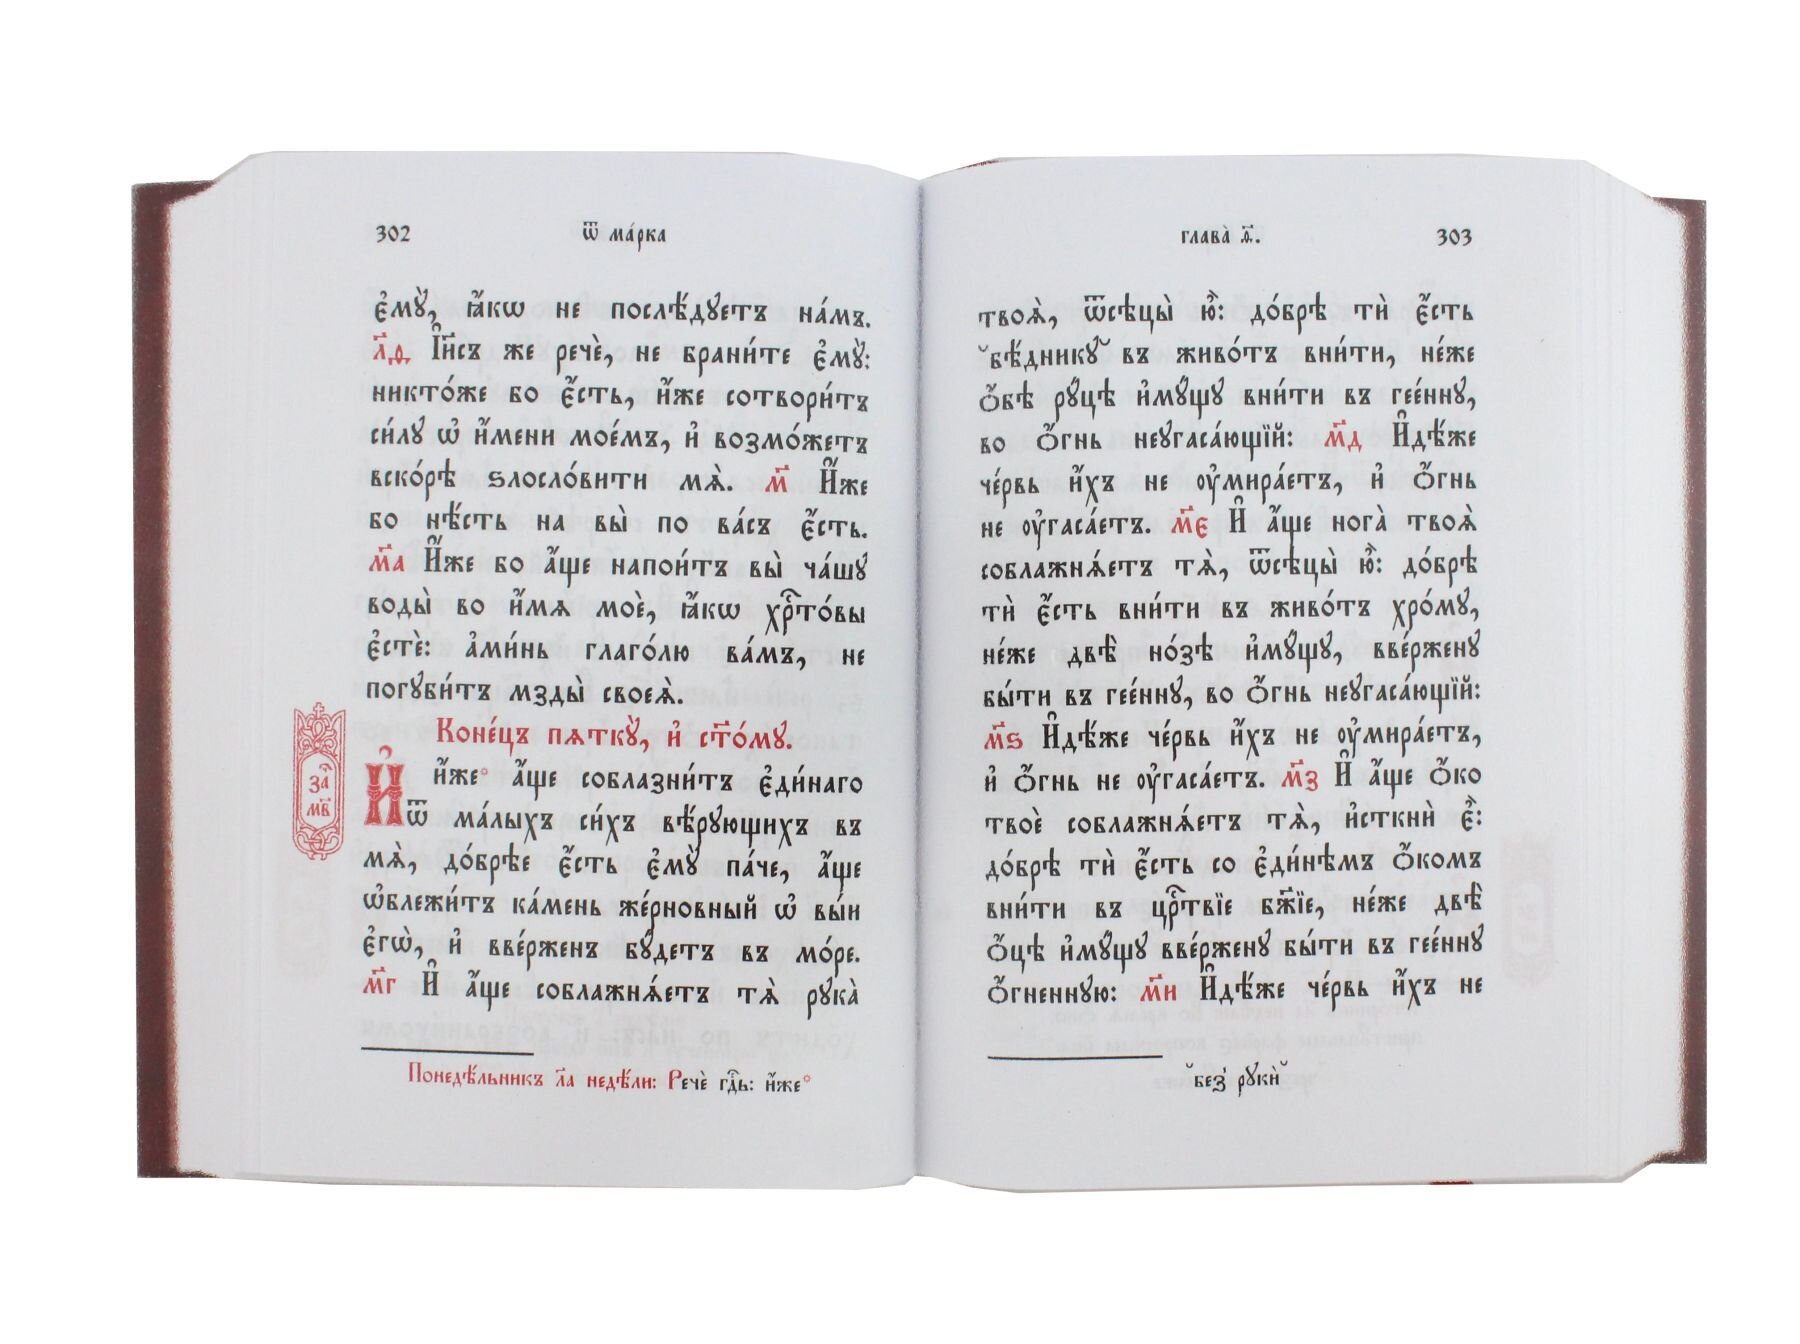 302
ѿ ма́рка
є҆мꙋ̀, ꙗ҆́кѡ не послѣ́дꙋетъ на́мъ.
л҃ѳ І҆и҃съ же речѐ, не брани́те є҆мꙋ̀:
никто́же бо є҆́сть, и҆́же сотвори́тъ
си́лꙋ ѡ҆ и҆́мени мое́мъ, и҆ возмо́жетъ
вско́рѣ ѕлосло́вити мѧ̀. м҃ И҆́же
бо нѣ́сть на вы̀ по ва́съ є҆́сть.
м҃а И҆́же бо а҆́ще напои́тъ вы̀ ча́шꙋ
воды̀ во и҆́мѧ моѐ, ꙗ҆́кѡ хрⷭ҇то́вы
є҆стѐ: а҆ми́нь глаго́лю ва́мъ, не
погꙋби́тъ мзды̀ своеѧ̀.
Коне́цъ пѧткꙋ̀, и҆ ст҃о́мꙋ.
за҄
м҃в
И҆
и҆́же* а҆́ще соблазни́тъ є҆ди́наго
ѿ ма́лыхъ си́хъ вѣ́рꙋющихъ въ
мѧ̀, до́брѣе є҆́сть є҆мꙋ̀ па́че, а҆́ще
ѡ҆блежи́тъ ка́мень же́рновный ѡ҆ вы́и
є҆гѡ̀, и҆ вве́рженъ бꙋ́детъ въ мо́ре.
м҃г И҆ а҆́ще соблажнѧ́етъ тѧ̀ рꙋка̀
Понедѣ́льникъ л҃а недѣ́ли: Речѐ гдⷭ҇ь: и҆́же*
глава̀ ѳ҃.
303
твоѧ̀, ѿсѣцы̀ ю҆̀: до́брѣ тѝ є҆́сть
ˇбѣ́дникꙋˇ въ живо́тъ вни́ти, не́же
ѻ҆́бѣ рꙋ́цѣ и҆мꙋ́щꙋ вни́ти въ гее́ннꙋ,
во ѻ҆́гнь неꙋгаса́ющїй: м҃д И҆дѣ́же
че́рвь и҆́хъ не ᲂу҆мира́етъ, и҆ ѻ҆́гнь
не ᲂу҆гаса́етъ. м҃є И҆ а҆́ще нога̀ твоѧ̀
соблажнѧ́етъ тѧ̀, ѿсѣцы̀ ю҆̀: до́брѣ
тѝ є҆́сть вни́ти въ живо́тъ хро́мꙋ,
не́же двѣ̀ но́зѣ и҆мꙋ́щꙋ, вве́рженꙋ
бы́ти въ гее́ннꙋ, во ѻ҆́гнь неꙋгаса́ющїй:
м҃ѕ И҆дѣ́же че́рвь и҆́хъ не ᲂу҆мира́етъ,
и҆ ѻ҆́гнь не ᲂу҆гаса́етъ. м҃з И҆ а҆́ще ѻ҆́ко
твоѐ соблажнѧ́етъ тѧ̀, и҆сткнѝ є҆̀:
до́брѣ тѝ є҆́сть со є҆ди́нѣмъ ѻ҆́комъ
вни́ти въ црⷭ҇твїе бж҃їе, не́же двѣ̀
ѻ҆́цѣ и҆мꙋ́щꙋ вве́рженꙋ бы́ти въ гее́ннꙋ
ѻ҆́гненнꙋю: м҃и И҆дѣ́же че́рвь и҆́хъ не
ˇбез̾ рꙋкѝˇ